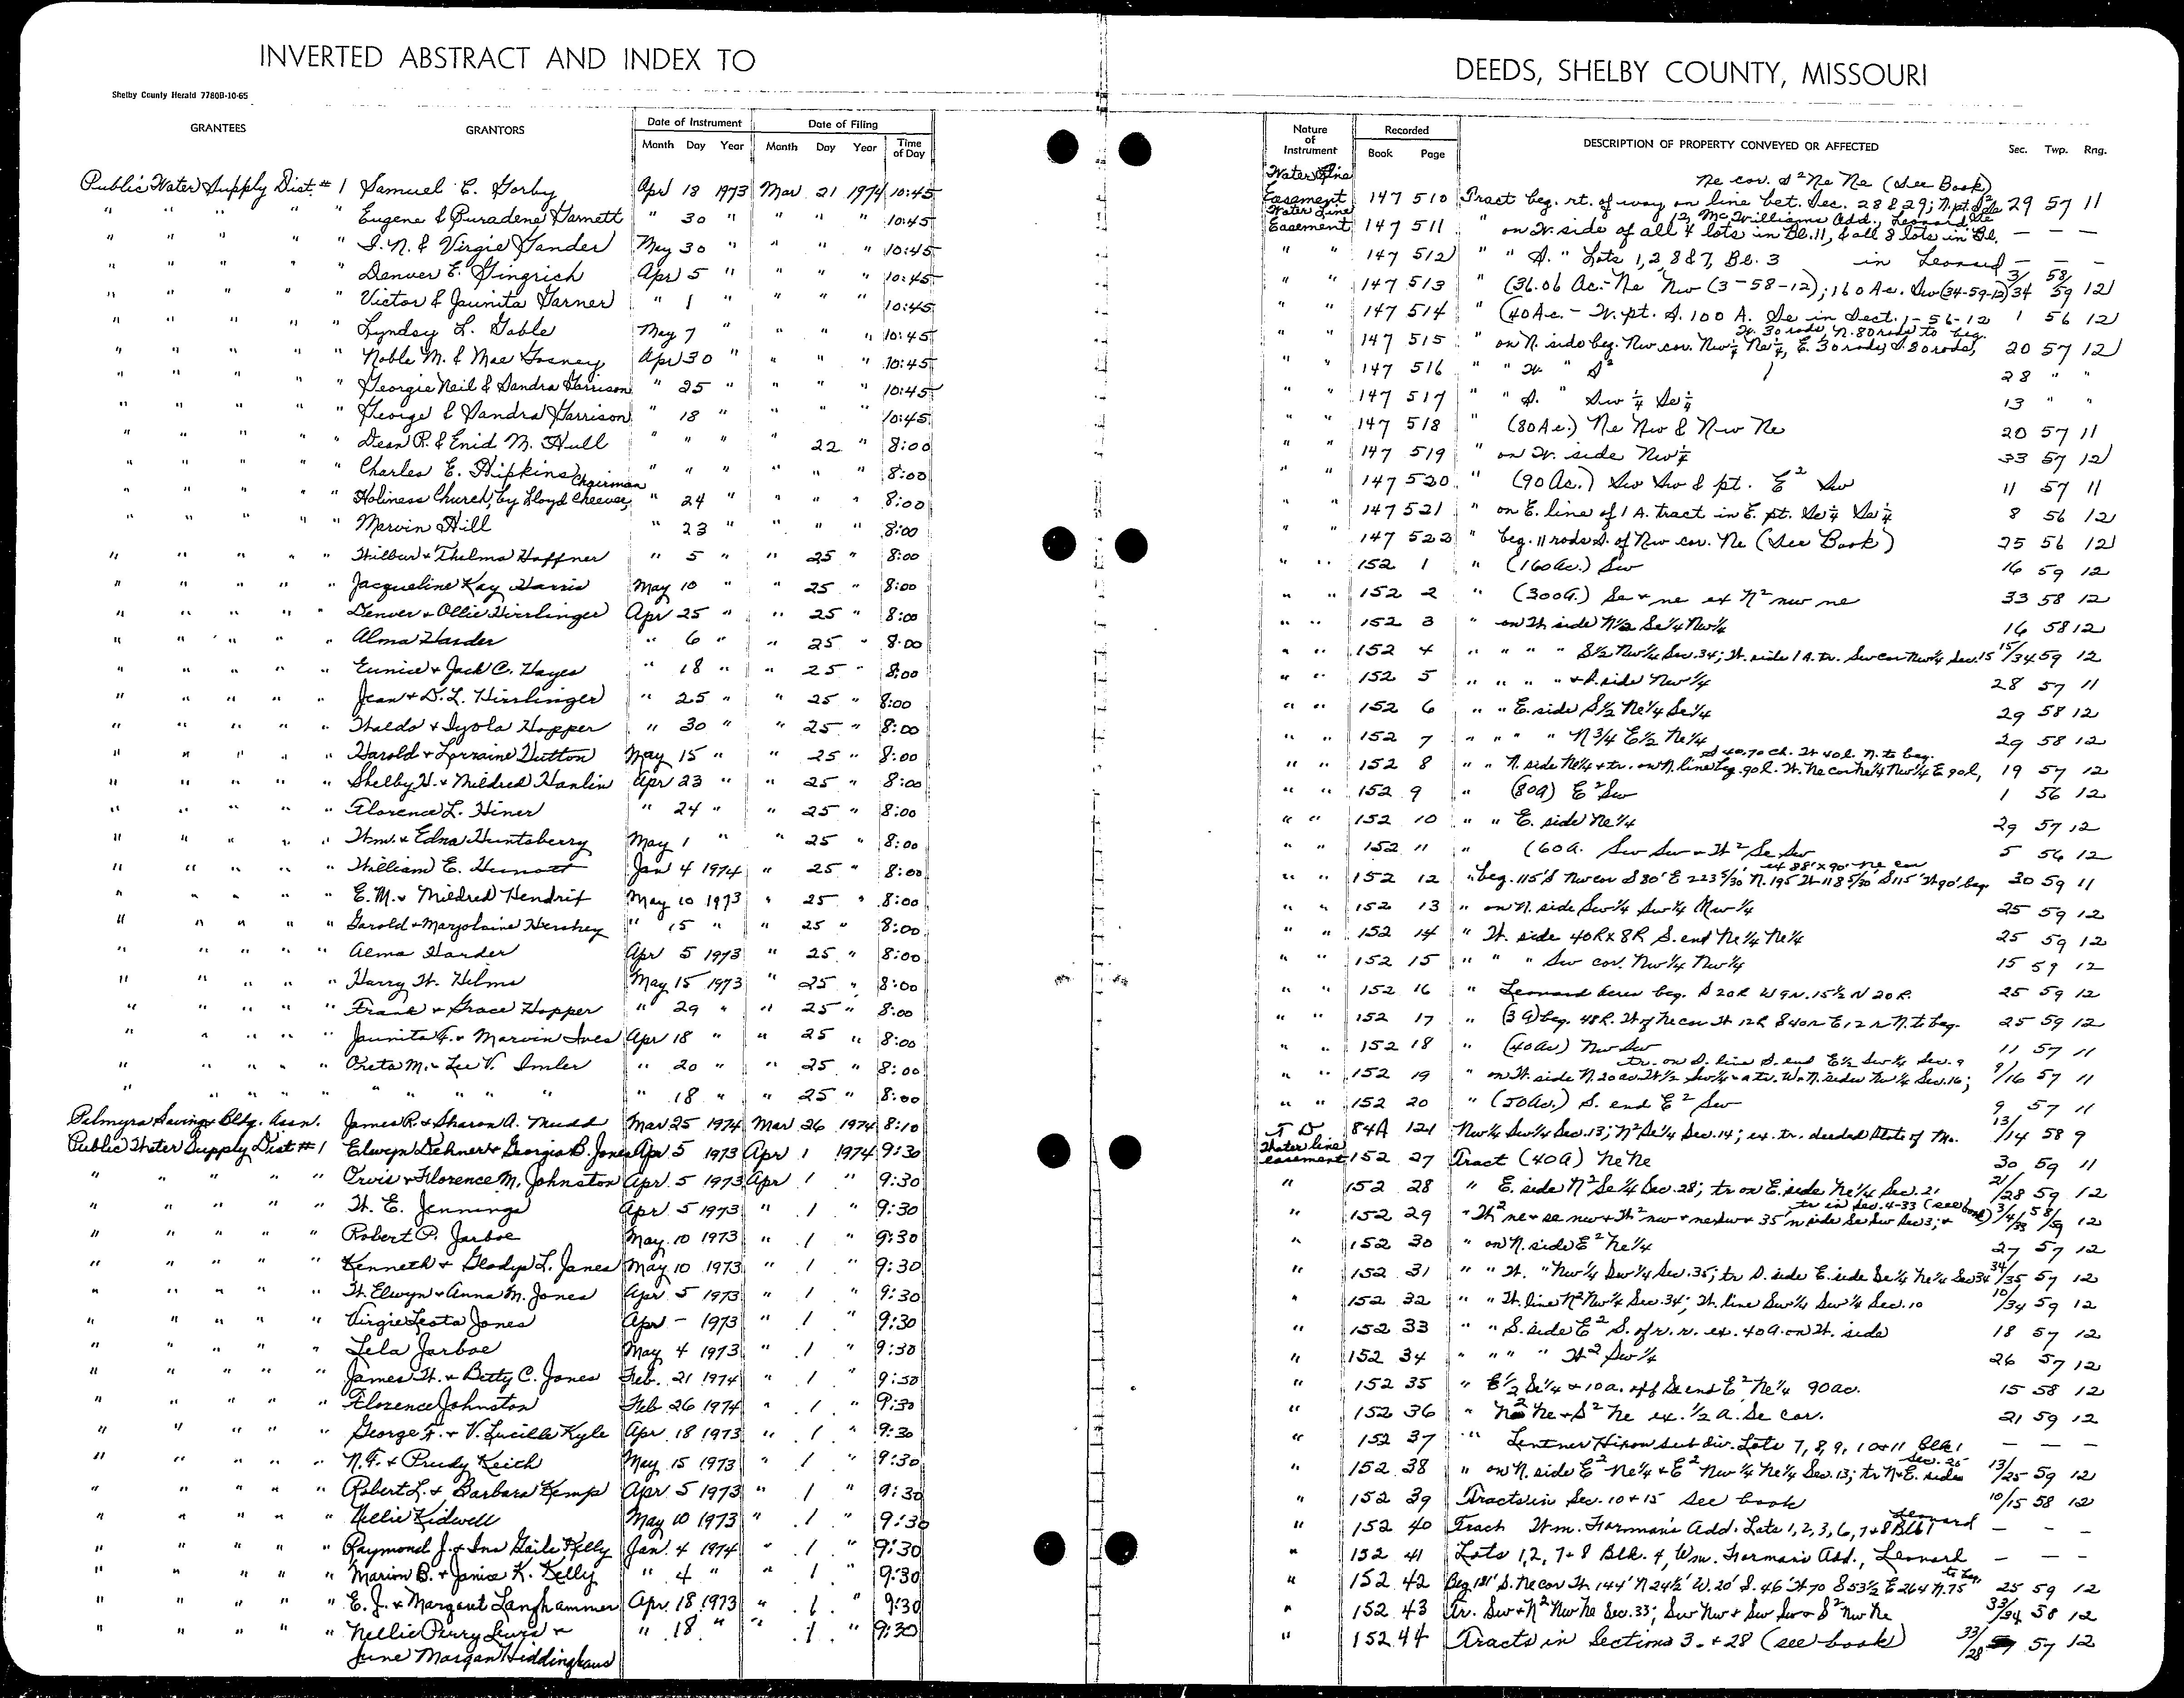 INVERTED ABSTRACT AND INDEX TO
DEEDS, SHELBY COUNTY, MISSOURI
Shelby County Herald 7780B-10-65
GRANTEES GRANTORS Date of Instrument Date of Filing Nature of Instrument Recorded DESCRIPTION OF PROPERTY CONVEYED OR AFFECTED Sec. Twp. Rng.
Month Day Year Month Day Year Time of Day Book Page
Public Water Supply Dist. #1 Samuel E. Gorby Apr 18 1973 Mar 21 1974 10:45 Water Line Easement 147 510 Tract beg. rt. of way on line bet. Sec. 28 & 29; N. pt. Ne cor. S² Ne Ne (See Book) 29 57 11
" " " " " Eugene & Buradene Garnett " 30 " " " " 10:45 Water Line Easement 147 511 " on W. side of all 4 lots in Bl. 11, & all 8 lots in Bl. 12, McWilliams Add., Leonard — — —
" " " " " I. N. & Virgie Gander May 30 " " " " 10:45 " " 147 512 " " S. " Lots 1, 2, 8 & 7, Bl. 3 in Leonard — — —
" " " " " Denver E. Gingrich Apr 5 " " " " 10:45 " " 147 513 " (36.06 Ac.- Ne Nw (3-58-12); 160 Ac. Sw (34-59-12) 3/34 58/59 12
" " " " " Victor & Jaunita Garner " 1 " " " " 10:45 " " 147 514 " (40 Ac. - W. pt. S. 100 A. Se in Sect. 1-56-12 1 56 12
" " " " " Lyndsy L. Gable May 7 " " " " 10:45 " " 147 515 " on N. side beg. Nw cor. Nw¼ Ne¼, E. 30 rods, S. 80 rods, W. 30 rods, N. 80 rods to beg. 20 57 12
" " " " " Noble M. & Mae Gosney Apr 30 " " " " 10:45 " " 147 516 " " W " S² 28 " "
" " " " " Georgie Neil & Sandra Garrison " 25 " " " " 10:45 " " 147 517 " " S. " Sw ¼ Se ¼ 13 " "
" " " " " George & Sandra Garrison " 18 " " " " 10:45 " " 147 518 " (80 Ac.) Ne Nw & Nw Ne 20 57 11
" " " " " Dean R. & Enid M. Hull " " " " 22 " 8:00 " " 147 519 " on W. side Nw¼ 33 57 12
" " " " " Charles E. Hipkins " " " " " " 8:00 " " 147 520 " (90 Ac.) Sw Sw & pt. E² Sw 11 57 11
" " " " " Holiness Church, by Lloyd Cheever, Chairman " 24 " " " " 8:00 " " 147 521 " on E. line of 1 A. tract in E. pt. Se¼ Se¼ 8 56 12
" " " " " Marvin Hill " 23 " " " " 8:00 " " 147 522 " beg. 11 rods S. of Nw cor. Ne (See Book) 25 56 12
" " " " " Wilbur & Thelma Haffner " 5 " " 25 " 8:00 " " 152 1 " (160 Ac.) Sw 16 59 12
" " " " " Jacqueline Kay Harris May 10 " " 25 " 8:00 " " 152 2 " (300 A.) Se & ne ex N² nw ne 33 58 12
" " " " " Denver & Ollie Hirrlinger Apr 25 " " 25 " 8:00 " " 152 3 " on W side N½ Se¼ Nw¼ 16 58 12
" " " " " Alma Harder " 6 " " 25 " 8:00 " " 152 4 " " " " S½ Nw¼ Sec. 34; W. side 1 A. tr. Sw cor Nw¼ Sec. 15 15/34 59 12
" " " " " Eunice & Jack C. Hayes " 18 " " 25 " 8:00 " " 152 5 " " " " & S. side Nw¼ 28 57 11
" " " " " Jean & D. L. Hirrlinger " 25 " " 25 " 8:00 " " 152 6 " " E. side S½ Ne¼ Se¼ 29 58 12
" " " " " Waldo & Izola Hopper " 30 " " 25 " 8:00 " " 152 7 " " " " N ¾ E½ Ne¼ 29 58 12
" " " " " Harold & Lorraine Hutton May 15 " " 25 " 8:00 " " 152 8 " " N. side Ne¼ & tr. on N. line beg. 90 l. W. Ne cor Ne¼ Nw¼ E 90 l, S 40.70 ch. W 40 l. N. to beg. 19 57 12
" " " " " Shelby H. & Mildred Hanlin Apr 23 " " 25 " 8:00 " " 152 9 " (80a) E² Sw 1 56 12
" " " " " Florence L. Hiner " 24 " " 25 " 8:00 " " 152 10 " " E. side Ne¼ 29 57 12
" " " " " Wm. & Edna Huntsberry May 1 " " 25 " 8:00 " " 152 11 " (60 a. Sw Sw & W² Se Sw 5 56 12
" " " " " William E. Jan 4 1974 " 25 " 8:00 " " 152 12 " beg. 115' S Nw cor S 80' E 223 5/30 N. 195 W 118 5/30 S 115' W 90' beg. ex 88' x 90' ne cor 30 59 11
" " " " " E. M. & Mildred Hendrix May 10 1973 " 25 " 8:00 " " 152 13 " on N. side Sw¼ Sw¼ Nw¼ 25 59 12
" " " " " Garold & Marjolaine Hershey " 15 " " 25 " 8:00 " " 152 14 " W. side 40R x 8R S. end Ne¼ Ne¼ 25 59 12
" " " " " Alma Harder Apr 5 1973 " 25 " 8:00 " " 152 15 " " " Sw cor. Nw¼ Nw¼ 15 59 12
" " " " " Harry W. Helms May 15 1973 " 25 " 8:00 " " 152 16 " Leonard acres beg. S 20R W 9 N. 15½ N 20 R. 25 59 12
" " " " " Frank & Grace Hopper " 29 " " 25 " 8:00 " " 152 17 " (3 a) beg. 48 R. W of Ne cor W 12R S 40 r E 12 r N. to beg. 25 59 12
" " " " " Jaunita F. & Marvin Ives Apr 18 " " 25 " 8:00 " " 152 18 " (40 Ac) Nw Sw 11 57 11
" " " " " Oreta M. & Lee V. Imler " 20 " " 25 " 8:00 " " 152 19 " on W. side N. 20 ac. W½ Sw¼ & a tr. W & N. sides Nw¼ Sec. 16; tr. on S. line S. end E½ Sw¼ Sec. 9 9/16 57 11
" " " " " " " " " " 18 " " 25 " 8:00 " " 152 20 " (50 Ac.) S. end E² Sw 9 57 11
Palmyra Savings Bldg. Assn. James R. & Sharon A. Mudd Mar 25 1974 Mar 26 1974 8:10 T D 84A 121 Nw¼ Sw¼ Sec. 13; N² Se¼ Sec. 14; ex. tr. deeded State of Mo. 13/14 58 9
Public Water Supply Dist #1 Elwyn Dehner & Georgia B. Jones Apr 5 1973 Apr 1 1974 9:30 Water line easement 152 27 Tract (40 A) Ne Ne 30 59 11
" " " " " Orvis & Florence M. Johnston Apr. 5 1973 Apr 1 " 9:30 " 152 28 " E. side N² Se¼ Sec. 28; tr on E. side Ne¼ Sec. 21 21/28 59 12
" " " " " W. E. Jennings Apr 5 1973 " 1 " 9:30 " 152 29 " W² ne & se nw & W² nw & ne sw & 35' n side Se Sw Sec 3; & tr in Sec. 4-33 (see book) 3/4/33 58/59 12
" " " " " Robert P. Jarboe May. 10 1973 " 1 " 9:30 " 152 30 " on N. side E² Ne¼ 27 57 12
" " " " " Kenneth & Gladys L. Janes May 10 1973 " 1 " 9:30 " 152 31 " " W. " Nw¼ Sw¼ Sec. 35; tr S. side E. side Se¼ Ne¼ Sec 34 34/35 57 12
" " " " " W. Elwyn & Anna M. Jones Apr. 5 1973 " 1 " 9:30 " 152 32 " " W. line N² Nw¼ Sec. 34; W. line Sw¼ Sw¼ Sec. 10 10/34 59 12
" " " " " Virgie Leota Jones Apr - 1973 " 1 " 9:30 " 152 33 " " S. side E² S. of r. r. ex. 40 a. on W. side 18 57 12
" " " " " Lela Jarboe May 4 1973 " 1 " 9:30 " 152 34 " " " " W² Sw¼ 26 57 12
" " " " " James W. & Betty C. Jones Feb. 21 1974 " 1 " 9:30 " 152 35 " E½ Se¼ & 10 a. off S end E² Ne¼ 90 ac. 15 58 12
" " " " " Florence Johnston Feb 26 1974 " 1 " 9:30 " 152 36 " N² Ne & S² Ne ex. ½ a. Se cor. 21 59 12
" " " " " George F. & V. Lucille Kyle Apr. 18 1973 " 1 " 9:30 " 152 37 " Lentner Hixon sub div. Lots 7, 8, 9, 10 & 11 Blk 1 — — —
" " " " " N. F. & Prudy Keith May 15 1973 " 1 " 9:30 " 152 38 " on N. side E² Ne¼ & E² Nw¼ Ne¼ Sec. 13; tr N & E. sides Sec. 25 13/25 59 12
" " " " " Robert L. & Barbara Kemp Apr 5 1973 " 1 " 9:30 " 152 39 Tracts in Sec. 10 & 15 See book 10/15 58 12
" " " " " Nellie Kidwell May 10 1973 " 1 " 9:30 " 152 40 Track Wm. Forman's Add. Lots 1, 2, 3, 6, 7 & 8 Blk 1 Leonard — — —
" " " " " Raymond J. & Ina Gaile Kelly Jan. 4 1974 " 1 " 9:30 " 152 41 Lots 1, 2, 7 & 8 Blk. 4, Wm. Forman's Add., Leonard — — —
" " " " " Marion B. & Janice K. Kelly " 4 " " 1 " 9:30 " 152 42 Beg 181' S. Ne cor W 144' N 24½' W. 20' S. 46' W 70 S 53½ E 264 N. 75 to beg. 25 59 12
" " " " " E. J. & Margaret Langhammer Apr. 18 1973 " 1 " 9:30 " 152 43 Tr. Sw & N² Nw Ne Sec. 33; Sw Nw & Sw Sw & S² Nw Ne 33/34 58 12
" " " " " Nellie Perry Lewis & " 18 " " 1 " 9:30 " 152 44 Tracts in Sections 3. & 28 (see book) 33/28 57 12
June Morgan Hiddinghaus